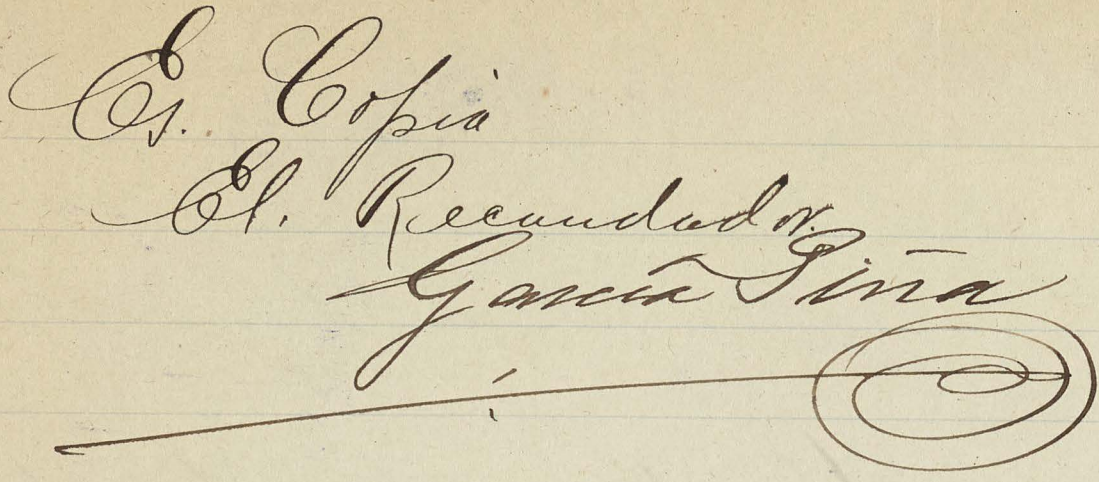 Es. Copia
El. Recaudador.
García Piña